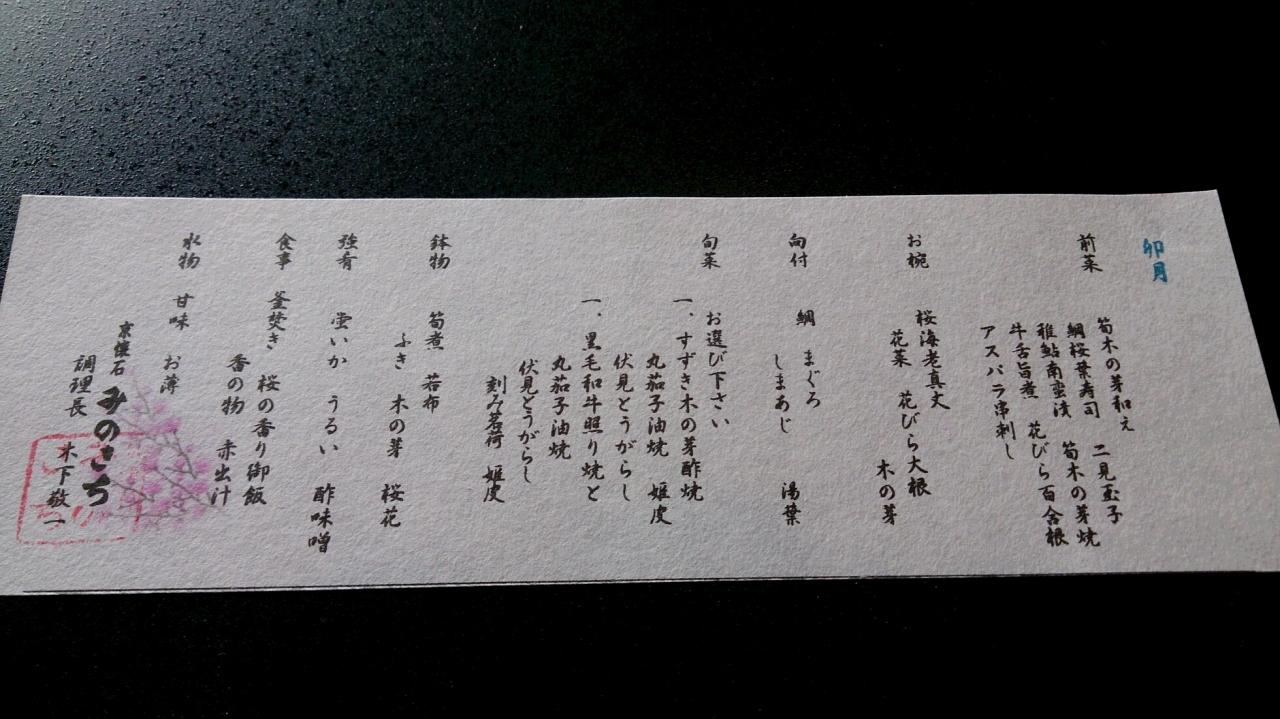 卯月
前菜
筍木の芽和え 二見玉子
鯛桜葉寿司 筍木の芽焼
稚鮎南蛮漬 花びら百合根
牛舌旨煮
アスパラ串刺し
お椀 桜海老真丈
花菜 花びら大根
木の芽
向付 鯛 まぐろ
しまあじ 湯葉
旬菜 お選び下さい
一、すずき木の芽酢焼
丸茄子油焼 姫皮
伏見とうがらし
一、黒毛和牛照り焼と
丸茄子油焼
伏見とうがらし
刻み茗荷 姫皮
鉢物 筍煮 若布
ふき 木の芽 桜花
強肴 蛍いか うるい 酢味噌
食事 釜焚き 桜の香り御飯
香の物 赤出汁
水物 甘味 お薄
京懐石 みのきち
調理長 木下敬一